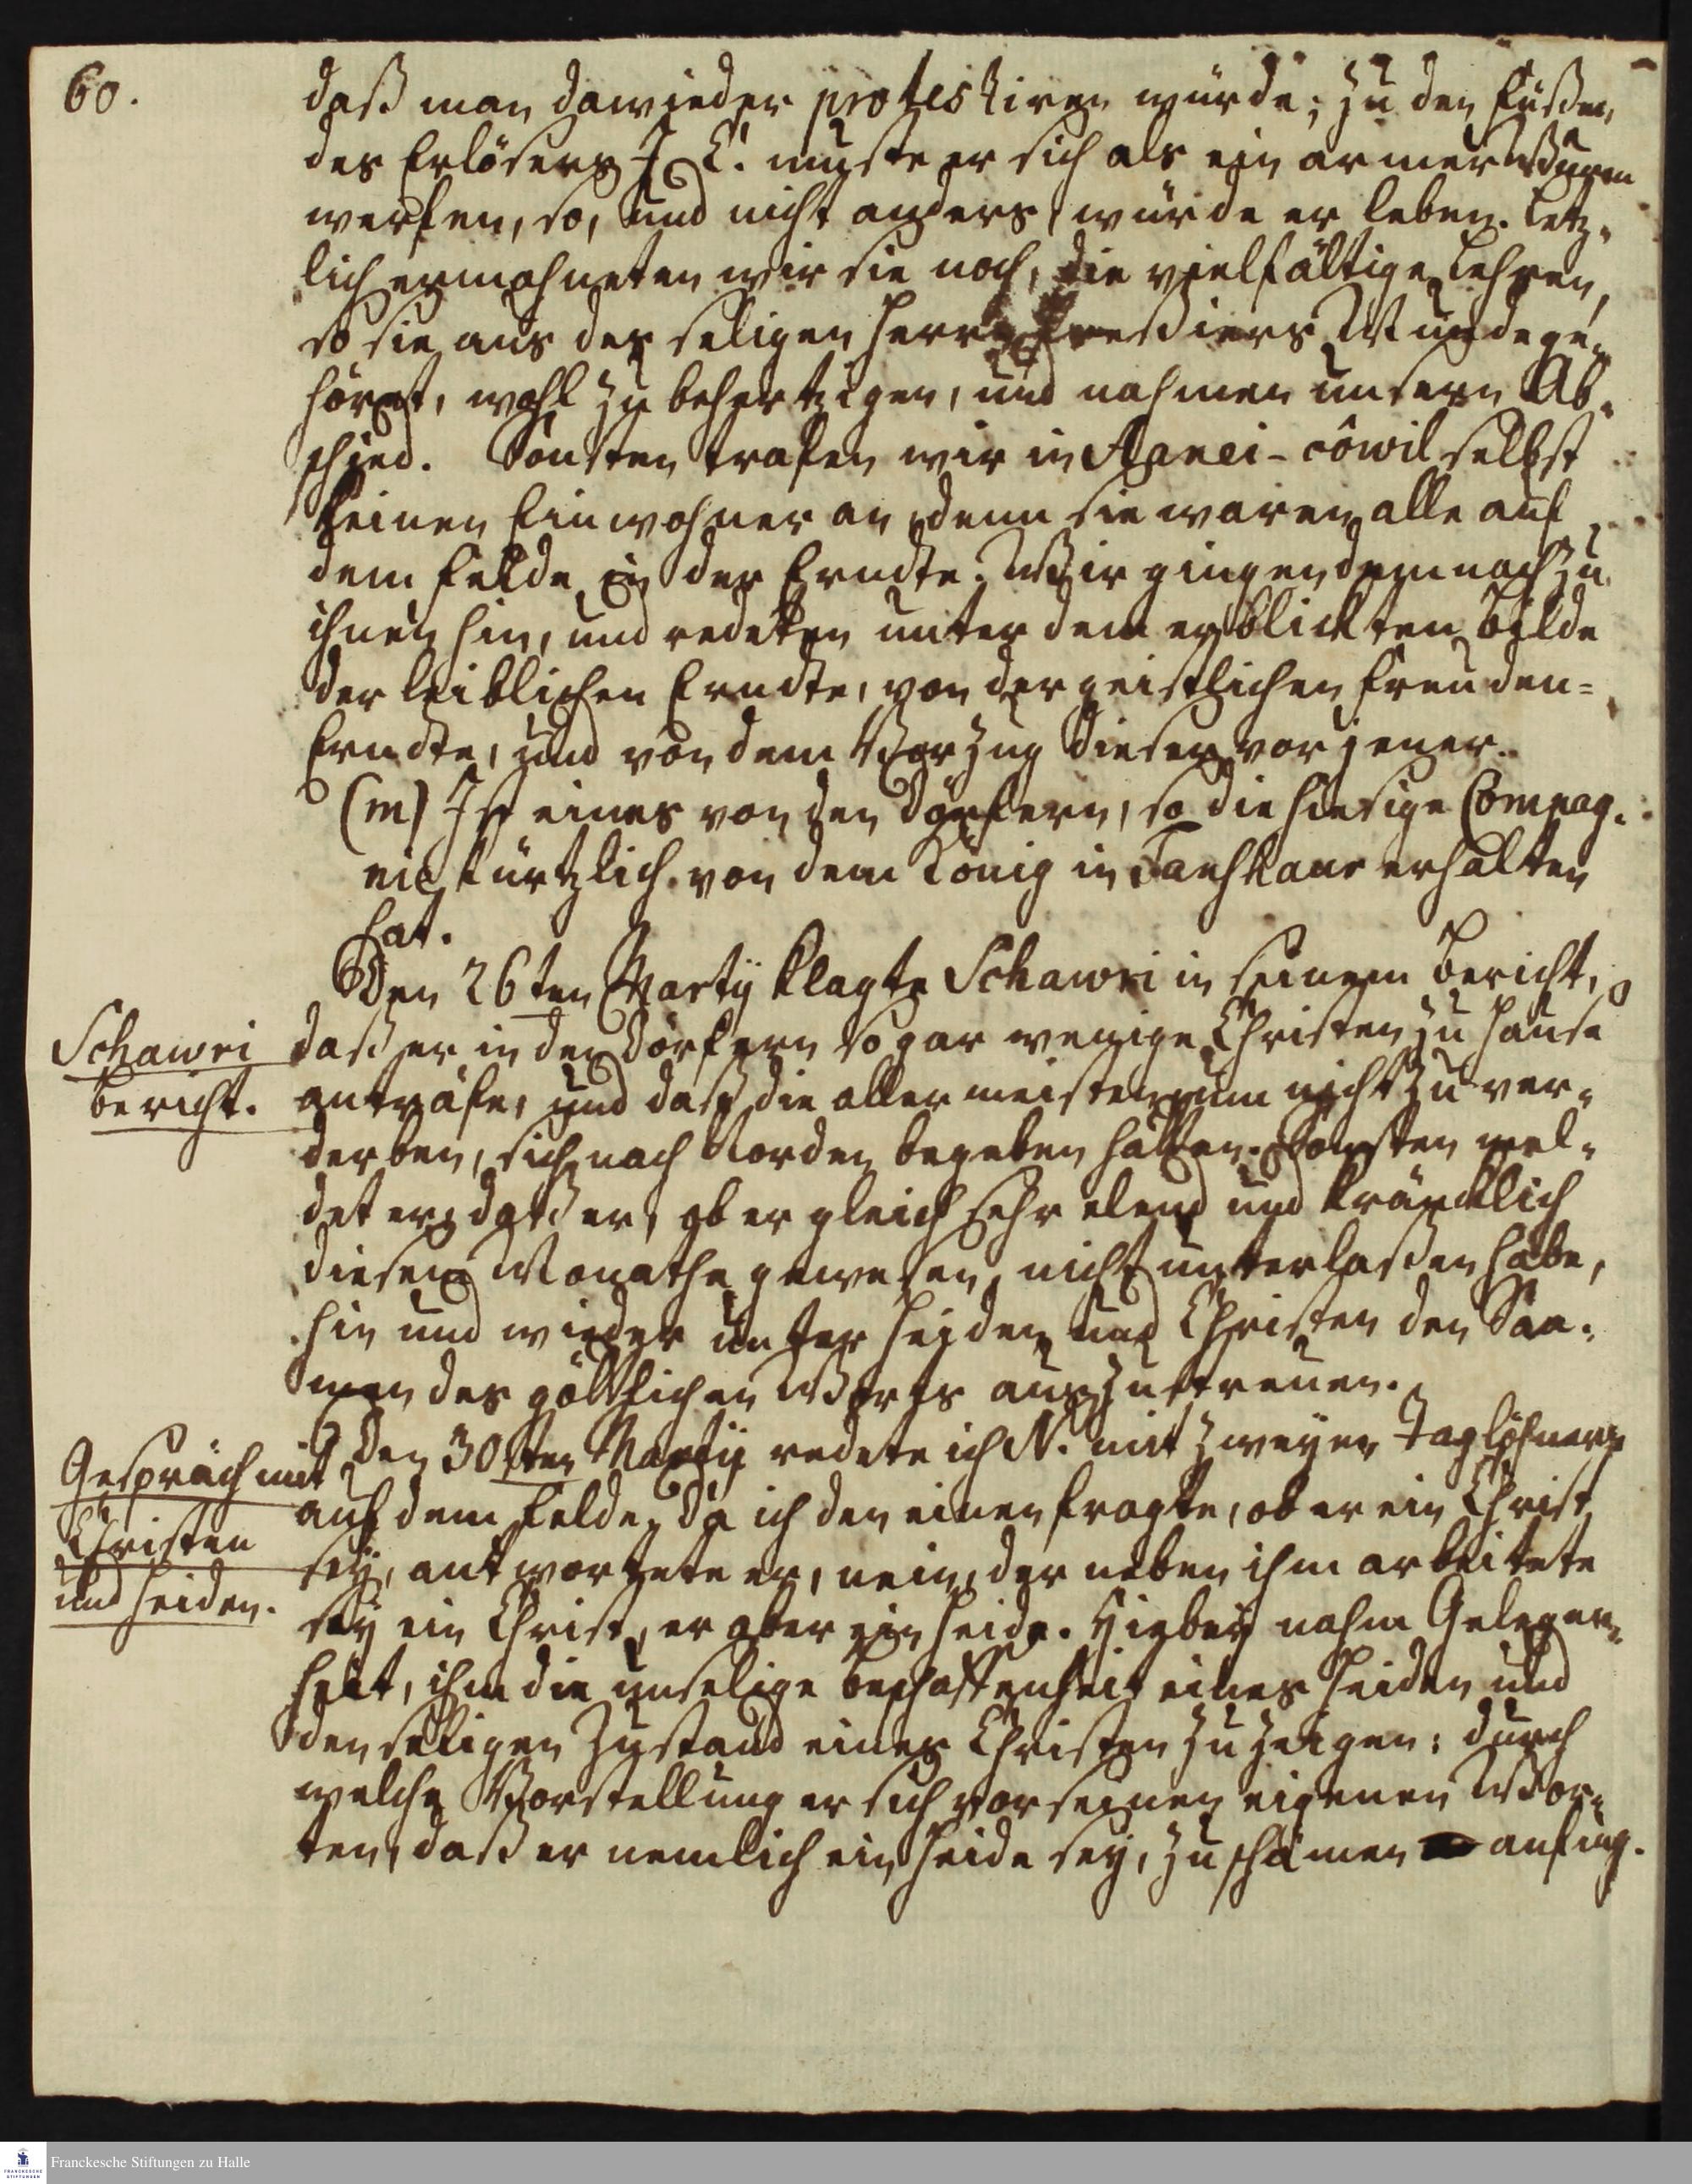 60.
daß man dawieder protestiren würde; zu den Füßen
des Erlösers J. C. müste er sich als ein armer Wurm
werfen, so, und nicht anders, würde er leben. Letz-
lich ermahneten wir sie noch, die vielfältige Lehren,
so sie aus des seligen Herrn Preßiers Munde ge-
höret, wohl zu behertzigen, und nahmen unsern Ab-
schied. Sonsten trafen wir in Aanei-côwil selbst
keinen Einwohner an, denn sie waren alle auf
dem Felde in der Erndte. Wir gingen demnach zu
ihnen hin, und redeten unter dem erblickten Bilde
der leiblichen Erndte, von der geistlichen Freuden-
Erndte, und von dem Vorzug dieser vor jener.
(m) Ist eines von den Dörfern, so die hiesige Compag-
nie kürtzlich von dem König in Tanschaur erhalten
hat.
Den 26ten Martij klagte Schawri in seinem Bericht,
Schawri
Bericht.
daß er in den Dörfern so gar wenige Christen zu Hause
anträfe, und daß die allermeisten, um nicht zu ver-
derben, sich nach Norden begeben hätten. Sonsten mel-
det er, daß er, ob er gleich sehr elend und kräncklich
diesen Monath gewesen, nicht unterlaßen habe,
hin und wieder unter Heiden und Christen den Saa-
men des göttlichen Worts auszustreuen.
Den 30sten Martij redete ich N. mit zweyen Taglöhnern
Gespräch mit
Christen
und Heiden.
auf dem Felde. Da ich den einen fragte, ob er ein Christ
sey, antwortete er, nein, der neben ihm arbeitete
sey ein Christ, er aber ein Heide. Hiebey nahm Gelegen-
heit, ihm die unselige Beschaffenheit eines Heiden und
den seligen Zustand eines Christen zu zeigen: durch
welche Vorstellung er sich vor seinen eigenen Wor-
ten, daß er nemlich ein Heide sey, zu schämen anfing.
Franckesche Stiftungen zu Halle